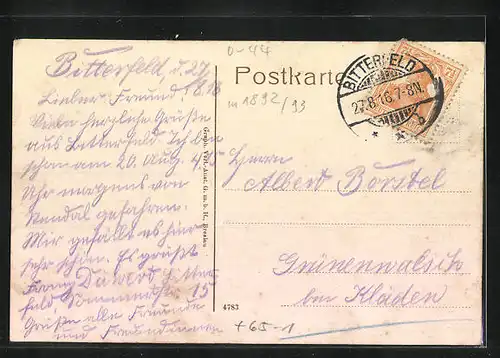 D-44
Bitterfeld, d. 27.
8. 16
Postkarte
m 1892/93
BITTERFELD
27.8.16.7-8N.
* * b
Lieber Freund!
Viele herzliche Grüße
aus Bitterfeld. Ich bin
schon am 20. Aug. 4,15
Uhr morgens von
Stendal gefahren.
Mir gefällt es hier
sehr schön. Es grüßt
Franz Bitter-
feld, 15
Grüße alle Freunde
und Freundinnen
Graph. Verl.-Anst. G. m. b. H., Breslau
Herrn
Albert Borstel
Grünenwulsch
bei Kläden
4783
+65-1